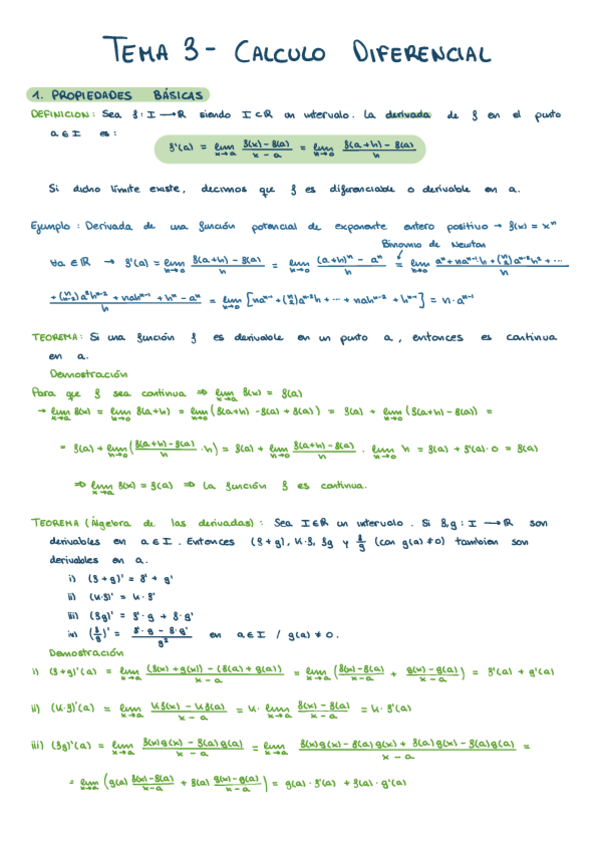 TEMA 3 - CALCULO DIFERENCIAL
1. PROPIEDADES BÁSICAS
DEFINICION: Sea f: I → ℝ siendo I ⊂ ℝ un intervalo. La derivada de f en el punto
a ∈ I es:
f'(a) = lim_{x→a} (f(x) - f(a))/(x - a) = lim_{h→0} (f(a+h) - f(a))/h
Si dicho límite existe, decimos que f es diferenciable o derivable en a.
Ejemplo: Derivada de una función potencial de exponente entero positivo → f(x) = x^n
Binomio de Newton
∀a ∈ ℝ → f'(a) = lim_{h→0} (f(a+h) - f(a))/h = lim_{h→0} ((a+h)^n - a^n)/h = lim_{h→0} (a^n + na^{n-1}h + (n 2)a^{n-2}h^2 + ...
+ (n n-2)a^2h^{n-2} + nah^{n-1} + h^n - a^n)/h = lim_{h→0} [na^{n-1} + (n 2)a^{n-2}h + ... + nah^{n-2} + h^{n-1}] = n·a^{n-1}
TEOREMA: Si una función f es derivable en un punto a, entonces es continua
en a.
Demostración
Para que f sea continua ⇒ lim_{x→a} f(x) = f(a)
→ lim_{x→a} f(x) = lim_{h→0} f(a+h) = lim_{h→0} (f(a+h) - f(a) + f(a)) = f(a) + lim_{h→0} (f(a+h) - f(a)) =
= f(a) + lim_{h→0} ((f(a+h) - f(a))/h · h) = f(a) + lim_{h→0} (f(a+h) - f(a))/h · lim_{h→0} h = f(a) + f'(a)·0 = f(a)
⇒ lim_{x→a} f(x) = f(a) ⇒ La función f es continua.
TEOREMA (Álgebra de las derivadas): Sea I∈ℝ un intervalo. Si f,g: I → ℝ son
derivables en a ∈ I. Entonces (f+g), k·f, fg y f/g (con g(a) ≠ 0) tambien son
derivables en a.
i) (f+g)' = f' + g'
ii) (k·f)' = k·f'
iii) (fg)' = f'·g + f·g'
iv) (f/g)' = (f'·g - f·g')/g^2 en a∈I / g(a) ≠ 0.
Demostración
i) (f+g)'(a) = lim_{x→a} ((f(x) + g(x)) - (f(a) + g(a)))/(x-a) = lim_{x→a} ((f(x)-f(a))/(x-a) + (g(x)-g(a))/(x-a)) = f'(a) + g'(a)
ii) (k·f)'(a) = lim_{x→a} (kf(x) - kf(a))/(x-a) = k· lim_{x→a} (f(x) - f(a))/(x-a) = k·f'(a)
iii) (fg)'(a) = lim_{x→a} (f(x)g(x) - f(a)g(a))/(x-a) = lim_{x→a} (f(x)g(x) - f(a)g(x) + f(a)g(x) - f(a)g(a))/(x-a) =
= lim_{x→a} (g(x) (f(x)-f(a))/(x-a) + f(a) (g(x)-g(a))/(x-a)) = g(a)·f'(a) + f(a)·g'(a)